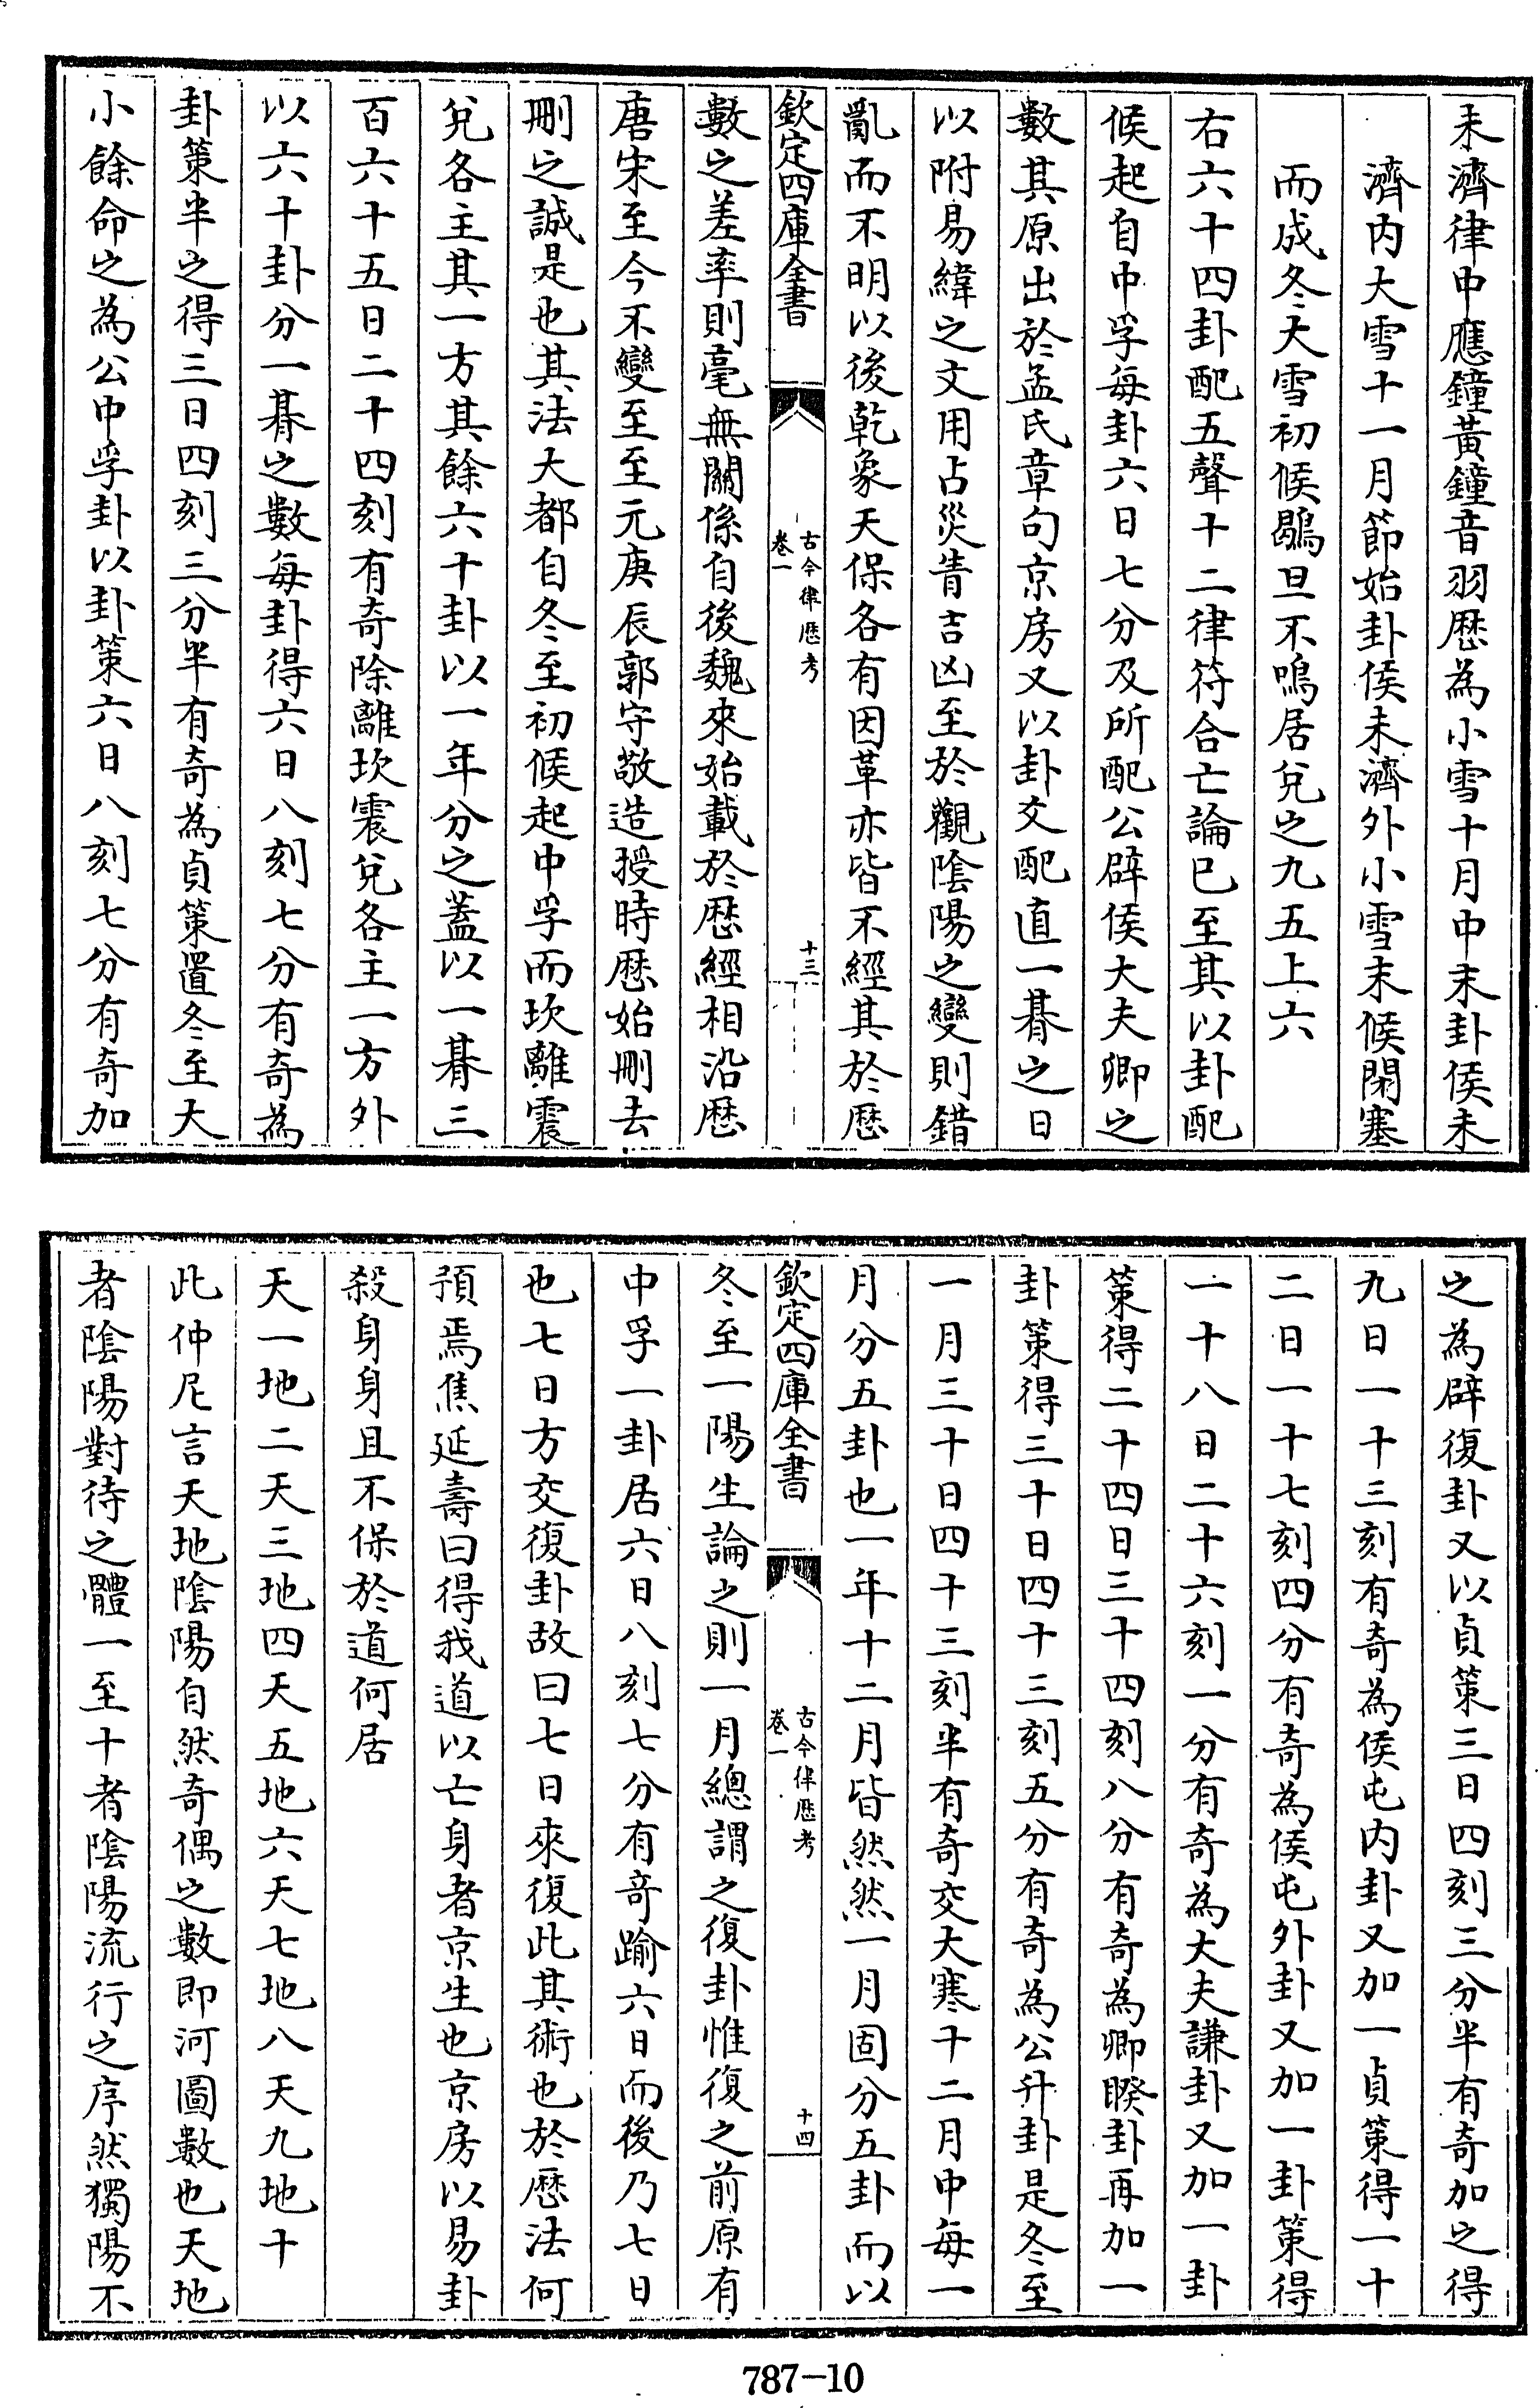 未濟律中應鐘黃鐘音羽厯為小雪十月中末卦侯未
濟内大雪十一月節始卦侯未濟外小雪末候閉塞
而成冬大雪初候鶡旦不鳴居兌之九五上六
右六十四卦配五聲十二律符合亡論已至其以卦配
候起自中孚每卦六日七分及所配公辟侯大夫卿之
數其原出於孟氏章句京房又以卦爻配直一朞之日
以附易緯之文用占災眚吉凶至於觀陰陽之變則錯
亂而不明以後乾象天保各有因革亦皆不經其於厯
欽定四庫全書
古今律厯考
卷一
十三
數之差率則毫無關係自後魏來始載於厯經相沿厯
唐宋至今不變至至元庚辰郭守敬造授時厯始刪去
刪之誠是也其法大都自冬至初候起中孚而坎離震
兌各主其一方其餘六十卦以一年分之蓋以一朞三
百六十五日二十四刻有奇除離坎震兌各主一方外
以六十卦分一朞之數每卦得六日八刻七分有奇為
卦策半之得三日四刻三分半有奇為貞策置冬至大
小餘命之為公中孚卦以卦策六日八刻七分有奇加
之為辟復卦又以貞策三日四刻三分半有奇加之得
九日一十三刻有奇為侯屯内卦又加一貞策得一十
二日一十七刻四分有奇為侯屯外卦又加一卦策得
一十八日二十六刻一分有奇為大夫謙卦又加一卦
策得二十四日三十四刻八分有奇為卿睽卦再加一
卦策得三十日四十三刻五分有奇為公升卦是冬至
一月三十日四十三刻半有奇交大寒十二月中每一
月分五卦也一年十二月皆然然一月固分五卦而以
欽定四庫全書
古今律厯考
卷一
十四
冬至一陽生論之則一月總謂之復卦惟復之前原有
中孚一卦居六日八刻七分有奇踰六日而後乃七日
也七日方交復卦故曰七日來復此其術也於厯法何
預焉焦延壽曰得我道以亡身者京生也京房以易卦
殺身身且不保於道何居
天一地二天三地四天五地六天七地八天九地十
此仲尼言天地陰陽自然奇偶之數即河圖數也天地
者陰陽對待之體一至十者陰陽流行之序然獨陽不
787-10